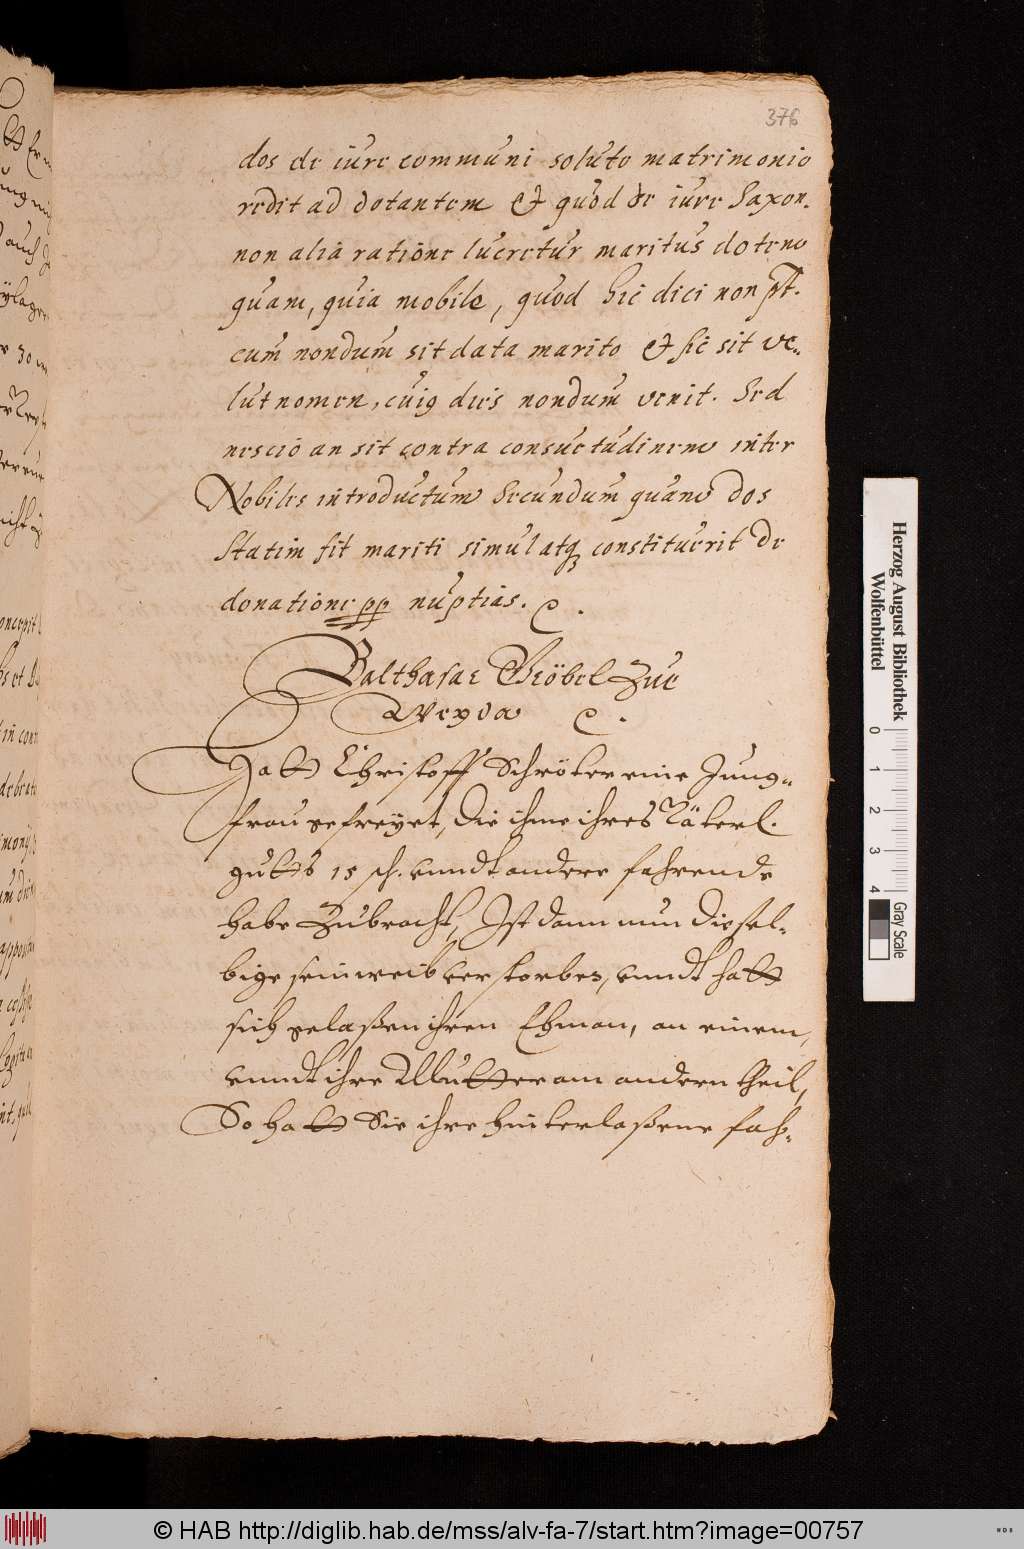 376
dos de iure communi soluto matrimonio
redit ad dotantem & quod de iure Saxon.
non alia ratione lucretur maritus dotem
quam, quia mobile, quod hic dici non pt.
cum nondum sit data marito & sic sit ve-
lut nomen, cuiq dies nondum venit. Sed
nescio an sit contra consuetudinem inter
Nobiles introductum Secundum quam dos
statim fit mariti simul atq constituerit de
donatione pp nuptias.
Balthasar Gröbel Zue
Weyda
Hatt Christoff Schröter eine Jung-
frau gefreyet, die ihme ihres Väterl.
gutts 15 ſch. vnndt andere fahrende
habe Zubracht, Ist dann nun diesel-
bige sein weib verstorben, vnndt hatt
sich gelaßen ihren Ehman, an einem,
vnndt ihre Mutter am andern theil,
So hatt Sie ihre hinterlaßene fah-
Herzog August Bibliothek
Wolfenbüttel
0 1 2 3 4
Gray Scale
© HAB http://diglib.hab.de/mss/alv-fa-7/start.htm?image=00757